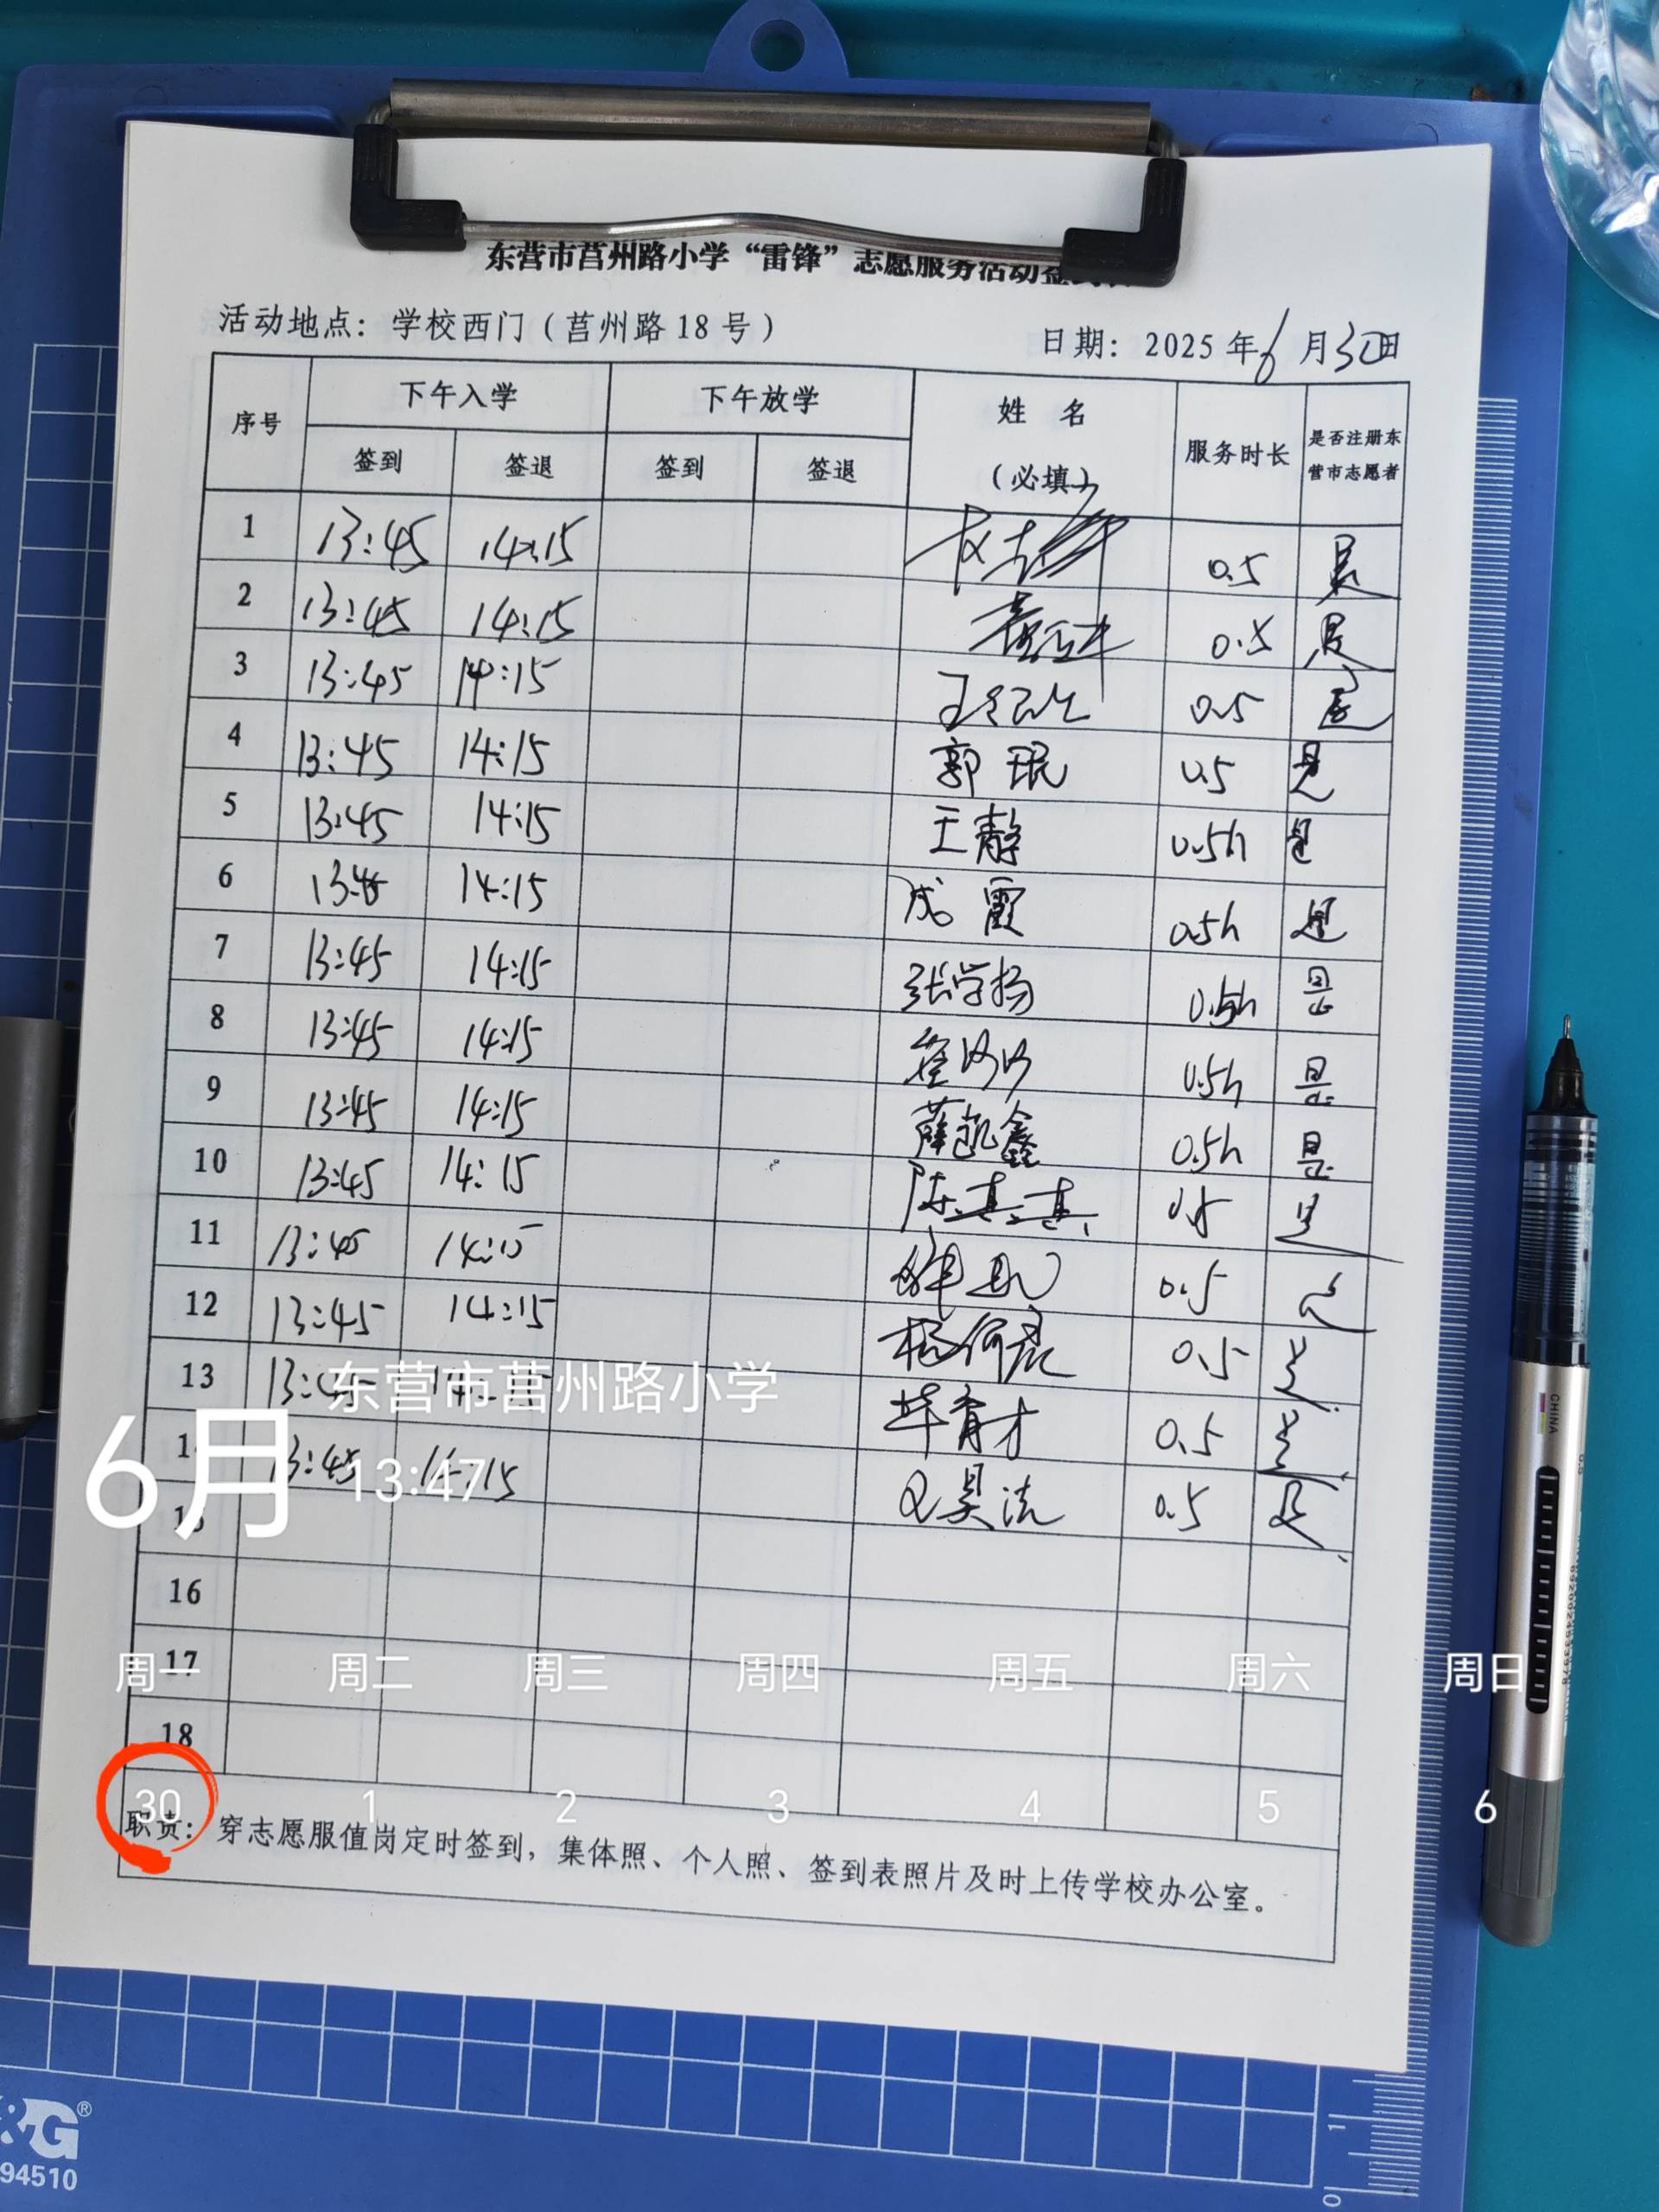 东营市莒州路小学“雷锋”志愿服务活动签到
活动地点：学校西门（莒州路18号） 日期：2025年6月30日
序号 下午入学 下午放学 姓 名 服务时长 是否注册东
签到 签退 签到 签退 （必填） 营市志愿者
1 13:45 14:15 0.5 是
2 13:45 14:15 0.5 是
3 13:45 14:15 0.5 是
4 13:45 14:15 郭珉 0.5 是
5 13:45 14:15 王静 0.5h 是
6 13:45 14:15 成霞 0.5h 是
7 13:45 14:15 张学扬 0.5h 是
8 13:45 14:15 0.5h 是
9 13:45 14:15 薛凯鑫 0.5h 是
10 13:45 14:15 陈真真 0.5 是
11 13:45 14:15 0.5 是
12 13:45 14:15 0.5 是
13 13:45 14:15 育才 0.5 是
东营市莒州路小学
14 13:45 14:15 0.5 是
6月 13:47
15
16
17
周一 周二 周三 周四 周五 周六 周日
18
30 1 2 3 4 5 6
职责：穿志愿服值岗定时签到，集体照、个人照、签到表照片及时上传学校办公室。
&G®
94510
CHINA
1
0